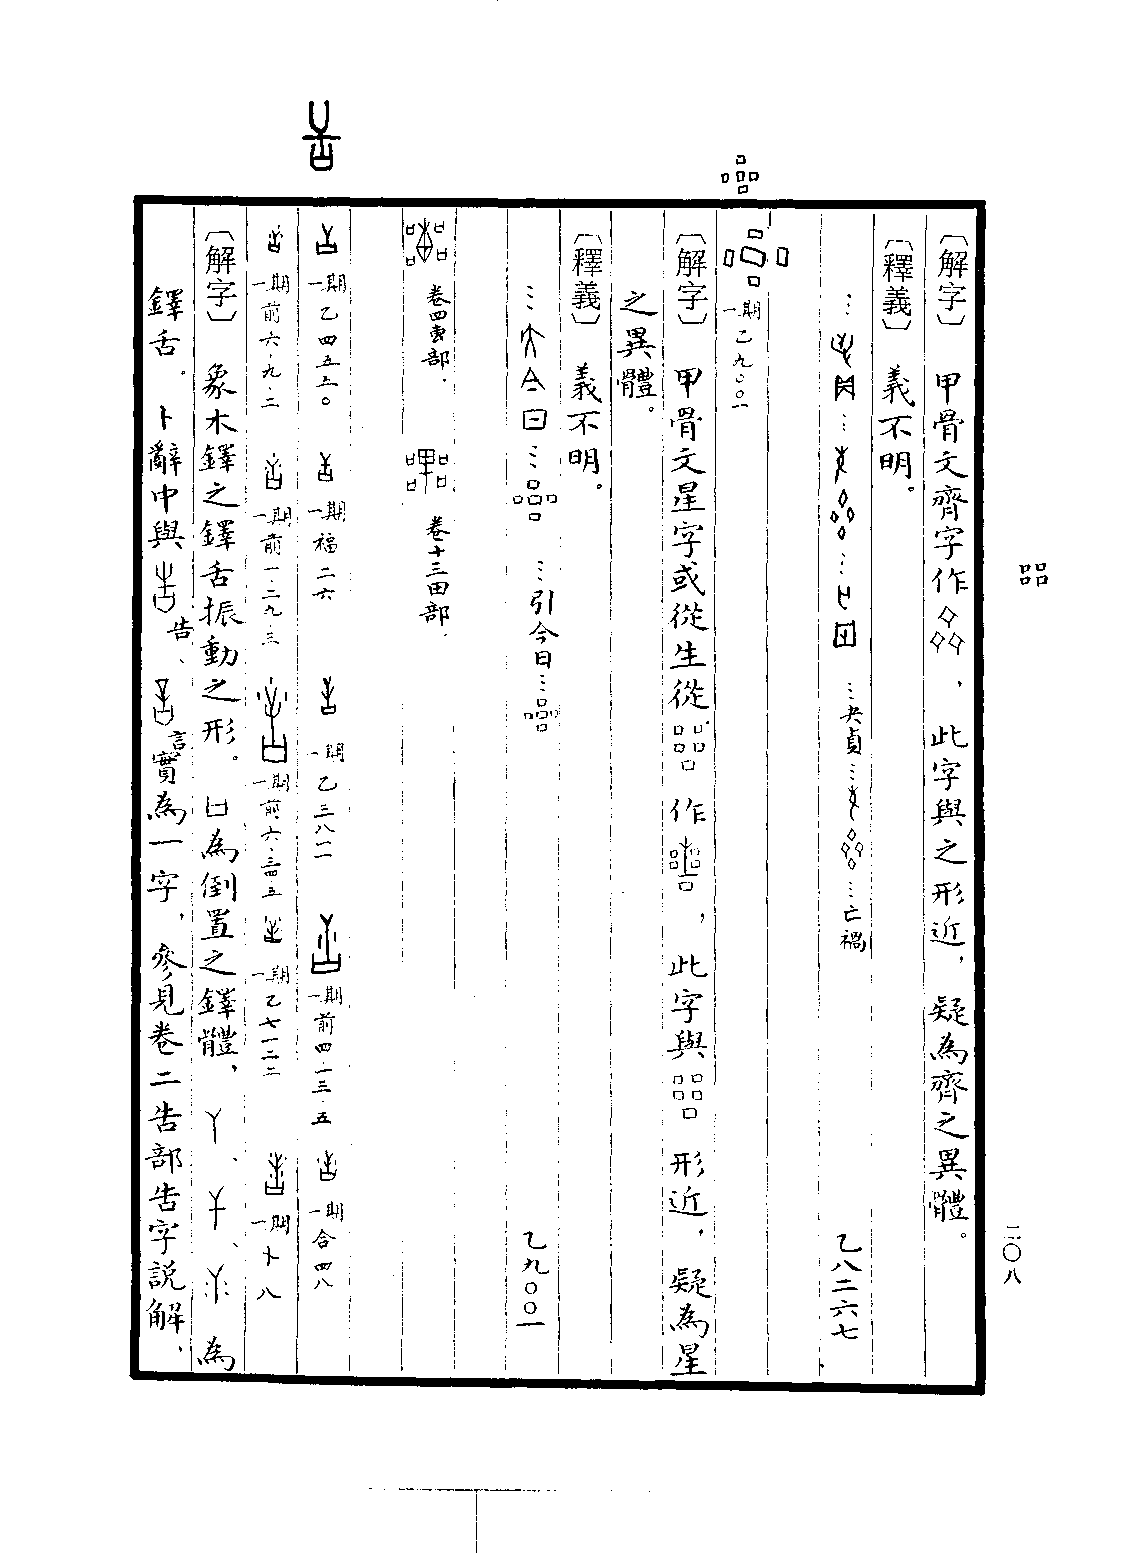 〔解字〕　甲骨文齊字作，此字與之形近，疑為齊之異體。
〔釋義〕　義不明。
…夬貞………亡禍　乙八二六七
一期乙九〇〇一
〔解字〕　甲骨文星字或從生從作，此字與形近，疑為星
之異體。
〔釋義〕　義不明。
…引今日…　乙九〇〇一
卷四叀部．　卷十三田部．
一期乙四五五〇　一期福二六　一期乙三八一一　一期前四·一三·五　一期合四八
一期前六·九·二　一期前一·二九·三　一期前六·三四·五　一期乙七一二二　一期卜八
〔解字〕　象木鐸之鐸舌振動之形。凵為倒置之鐸體，丫、、為
鐸舌。卜辭中與告、言實為一字，參見卷二告部告字說解．
二〇八